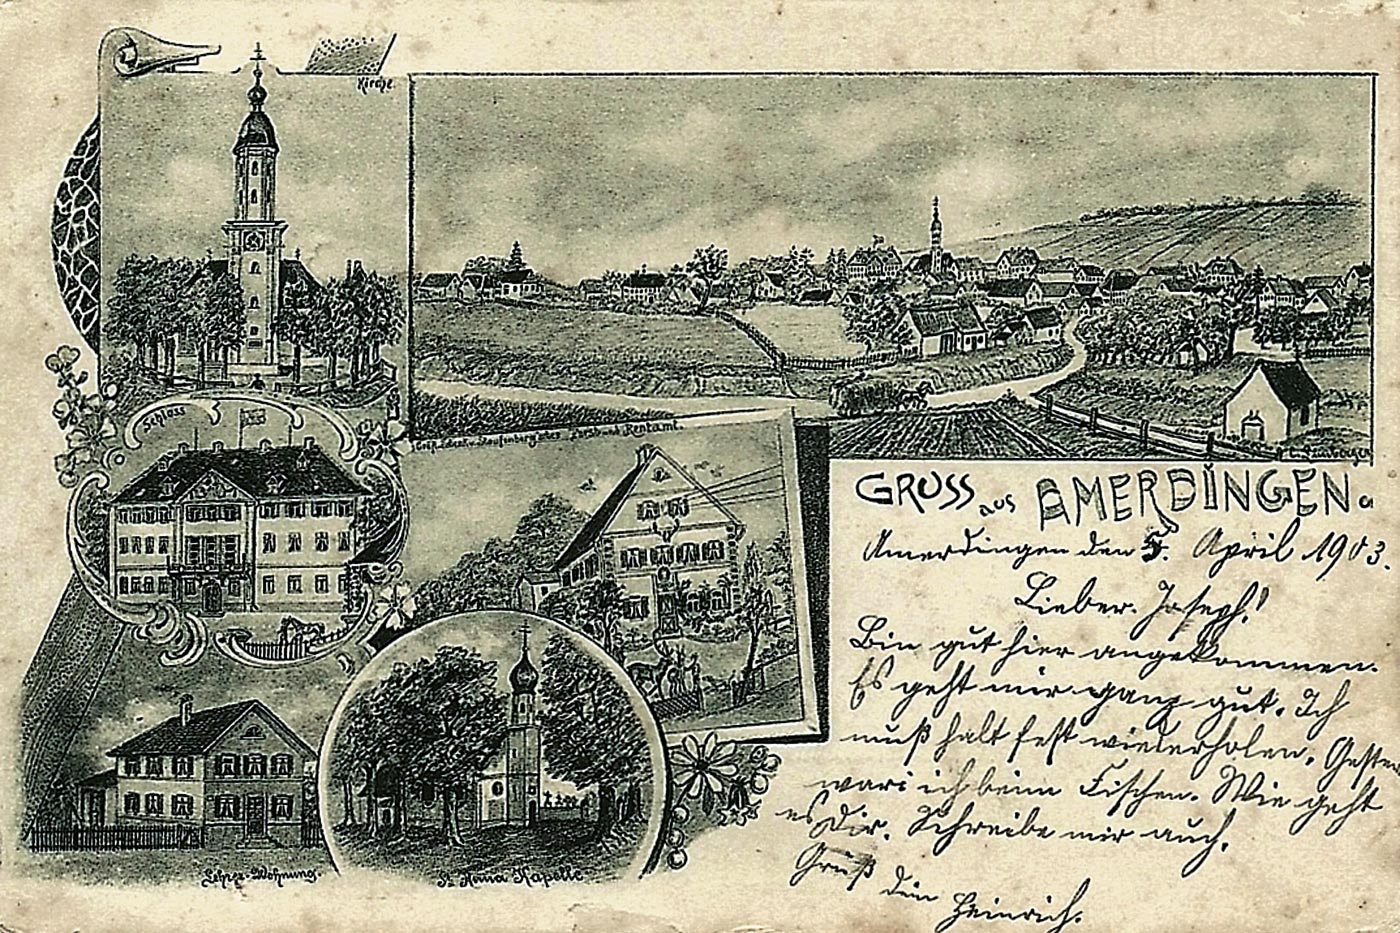 Kirche.
Schloss
Gräfl. Schenk v. Staufenberg'sches Forst- und Rentamt.
Lehrer-Wohnung.
St. Anna Kapelle
GRUSS aus AMERDINGEN
Amerdingen den 5. April 1903.
Lieber Joseph!
Bin gut hier angekommen.
Es geht mir ganz gut. Ich
muß halt fest wiederholen. Gestern
war ich beim Fischen. Wie geht
es Dir. Schreibe mir auch.
Gruß
dein
Heinrich.